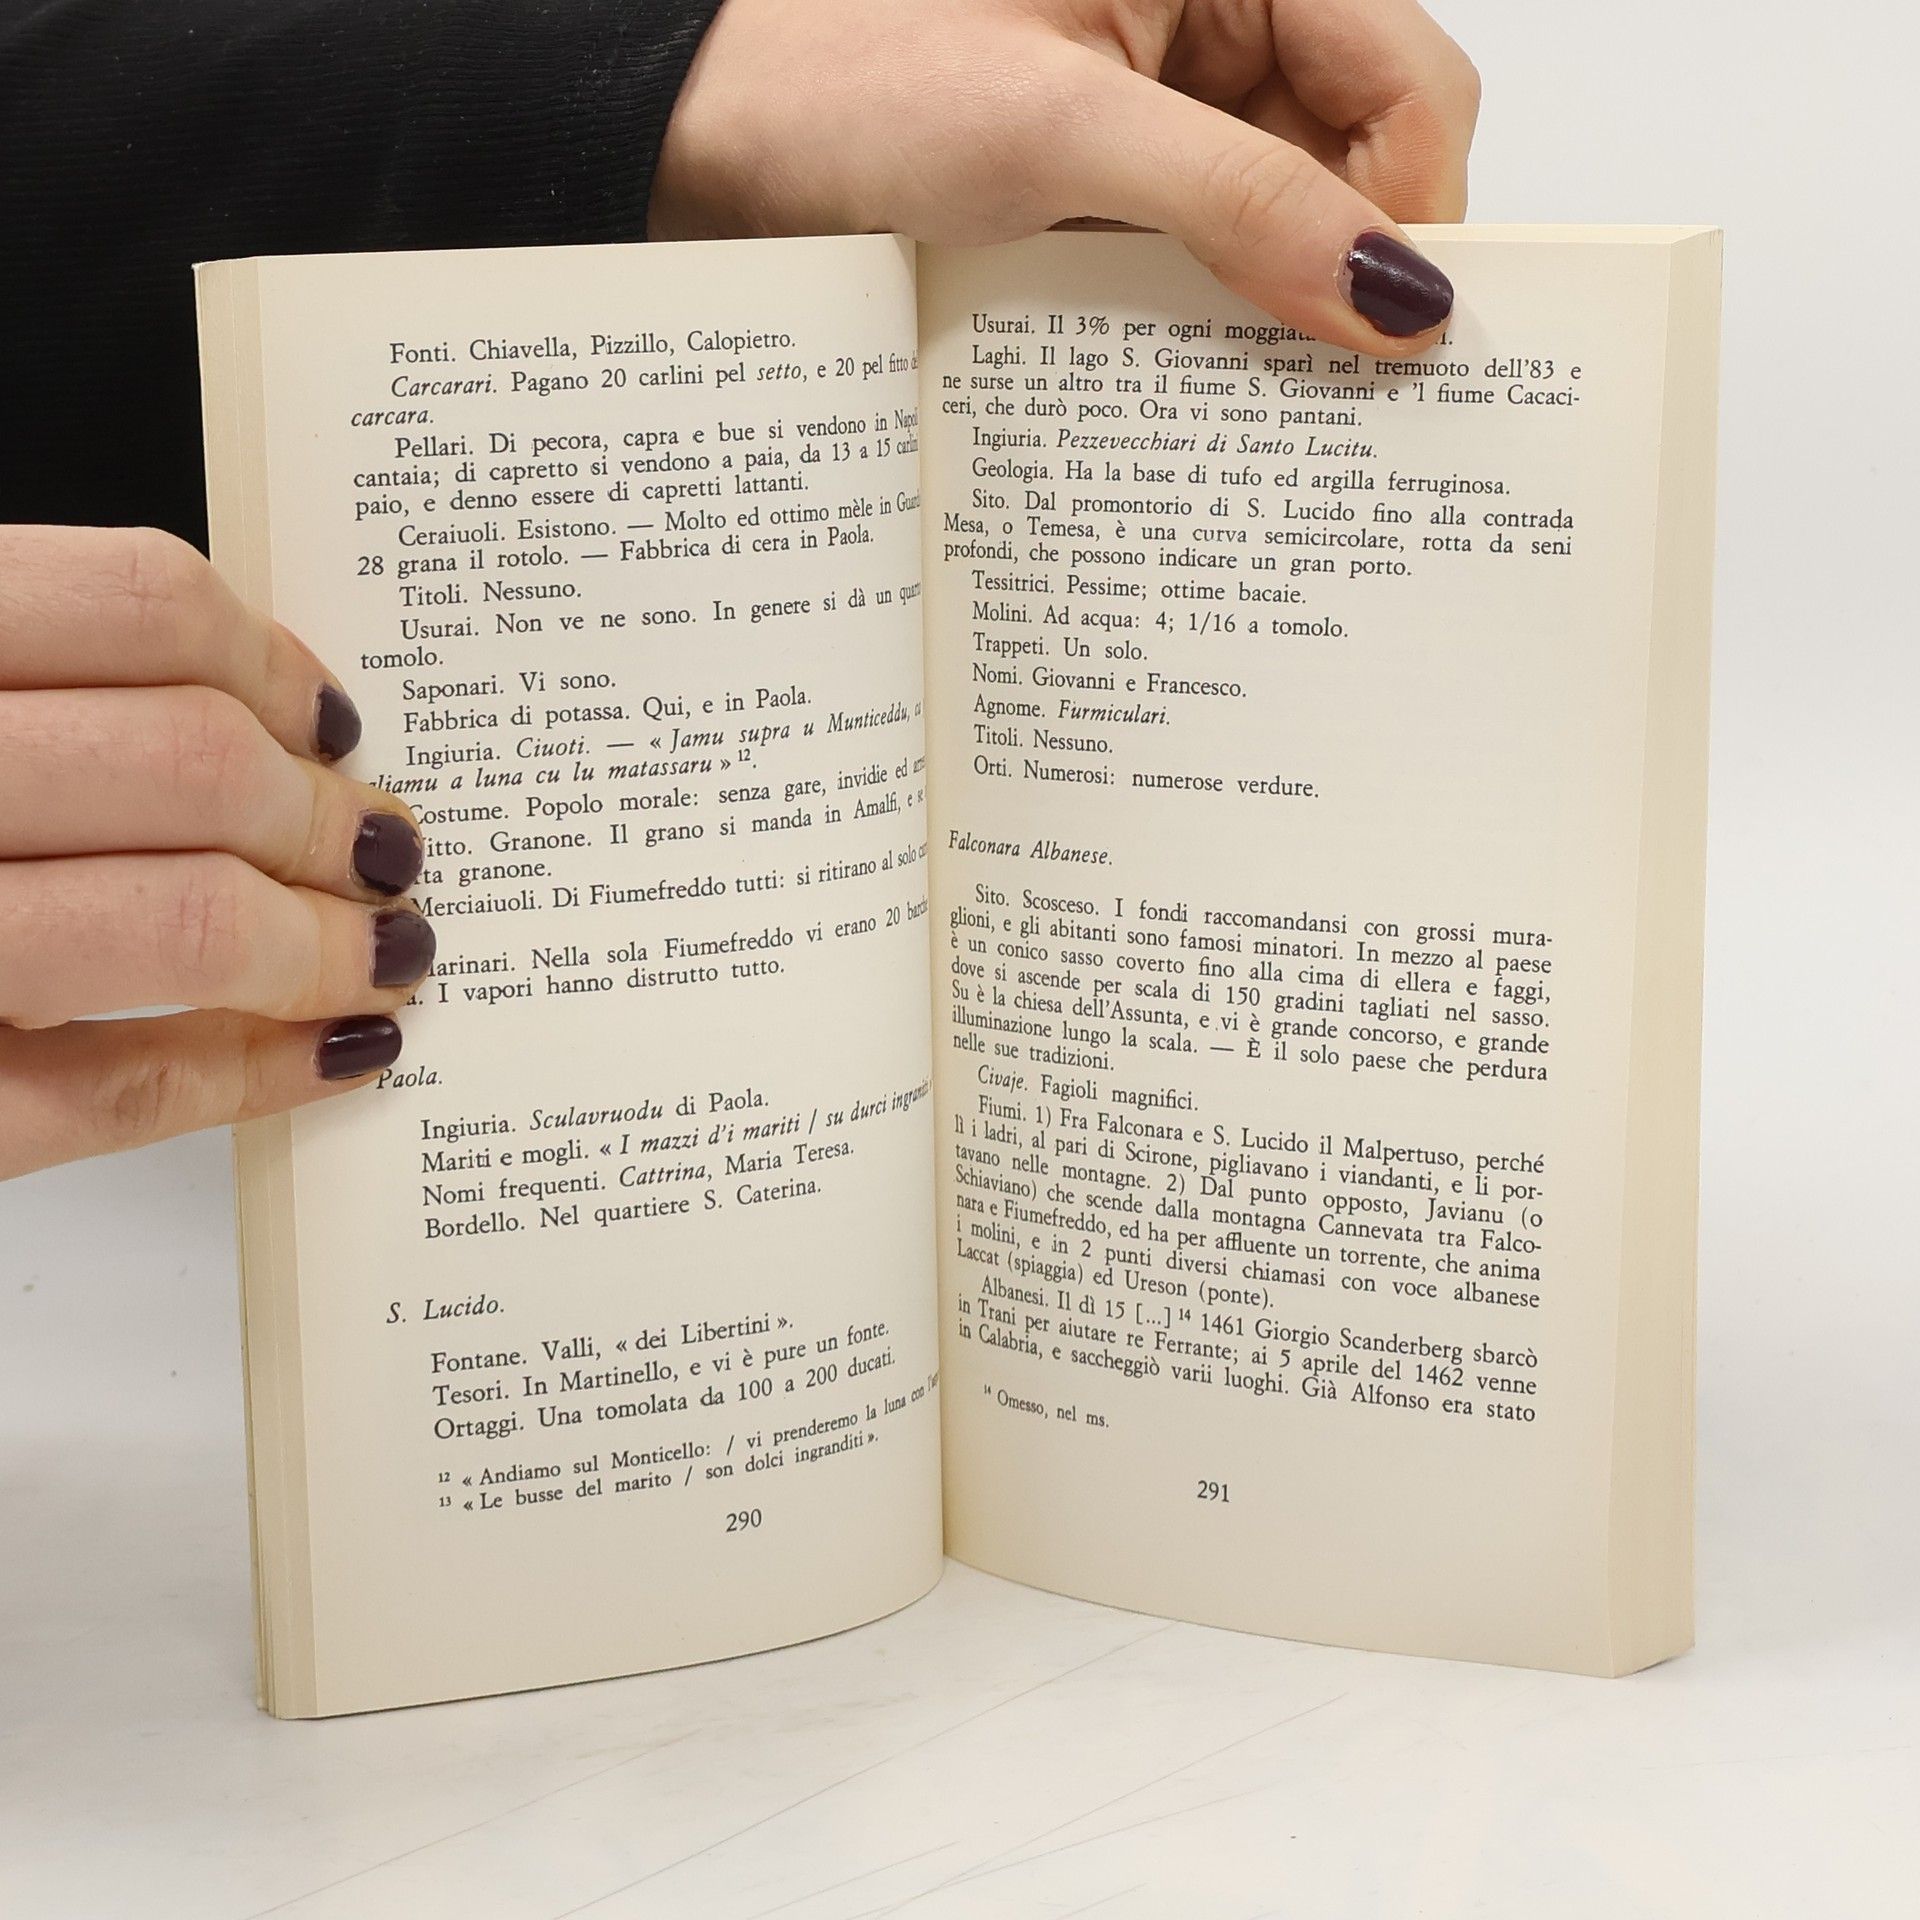 Fonti. Chiavella, Pizzillo, Calopietro.
Carcarari. Pagano 20 carlini pel setto, e 20 pel fitto
carcara.
Pellari. Di pecora, capra e bue si vendono in
cantaia; di capretto si vendono a paia, da 13 a 15
paio, e denno essere di capretti lattanti.
Ceraiuoli. Esistono. — Molto ed ottimo mèle in
28 grana il rotolo. — Fabbrica di cera in Paola.
Titoli. Nessuno.
Usurai. Non ve ne sono. In genere si dà un
tomolo.
Saponari. Vi sono.
Fabbrica di potassa. Qui, e in Paola.
Ingiuria. Ciuoti. — « Jamu supra u Munticeddu,
a luna cu lu matassaru » 12.
Costume. Popolo morale: senza gare, invidie ed
Granone. Il grano si manda in Amalfi, e
granone.
Merciaiuoli. Di Fiumefreddo tutti: si ritirano al solo
Nella sola Fiumefreddo vi erano 20
I vapori hanno distrutto tutto.
Paola.
Ingiuria. Sculavruodu di Paola.
Mariti e mogli. « I mazzi d'i mariti / su durci
Nomi frequenti. Cattrina, Maria Teresa.
Bordello. Nel quartiere S. Caterina.
S. Lucido.
Fontane. Valli, « dei Libertini ».
Tesori. In Martinello, e vi è pure un fonte.
Ortaggi. Una tomolata da 100 a 200 ducati.
12 « Andiamo sul Monticello: / vi prenderemo la luna con
13 « Le busse del marito / son dolci ingranditi ».
290
Usurai. Il 3% per ogni
Laghi. Il lago S. Giovanni sparì nel tremuoto dell'83 e
ne surse un altro tra il fiume S. Giovanni e 'l fiume Cacaci-
ceri, che durò poco. Ora vi sono pantani.
Ingiuria. Pezzevecchiari di Santo Lucitu.
Geologia. Ha la base di tufo ed argilla ferruginosa.
Sito. Dal promontorio di S. Lucido fino alla contrada
Mesa, o Temesa, è una curva semicircolare, rotta da seni
profondi, che possono indicare un gran porto.
Tessitrici. Pessime; ottime bacaie.
Molini. Ad acqua: 4; 1/16 a tomolo.
Trappeti. Un solo.
Nomi. Giovanni e Francesco.
Agnome. Furmiculari.
Titoli. Nessuno.
Orti. Numerosi: numerose verdure.
Falconara Albanese.
Sito. Scosceso. I fondi raccomandansi con grossi mura-
glioni, e gli abitanti sono famosi minatori. In mezzo al paese
è un conico sasso coverto fino alla cima di ellera e faggi,
dove si ascende per scala di 150 gradini tagliati nel sasso.
Su è la chiesa dell'Assunta, e vi è grande concorso, e grande
illuminazione lungo la scala. — È il solo paese che perdura
nelle sue tradizioni.
Civaje. Fagioli magnifici.
Fiumi. 1) Fra Falconara e S. Lucido il Malpertuso, perché
lì i ladri, al pari di Scirone, pigliavano i viandanti, e li por-
tavano nelle montagne. 2) Dal punto opposto, Javianu (o
Schiaviano) che scende dalla montagna Cannevata tra Falco-
nara e Fiumefreddo, ed ha per affluente un torrente, che anima
i molini, e in 2 punti diversi chiamasi con voce albanese
Laccat (spiaggia) ed Ureson (ponte).
Albanesi. Il dì 15 [...] 14 1461 Giorgio Scanderberg sbarcò
in Trani per aiutare re Ferrante; ai 5 aprile del 1462 venne
in Calabria, e saccheggiò varii luoghi. Già Alfonso era stato
14 Omesso, nel ms.
291